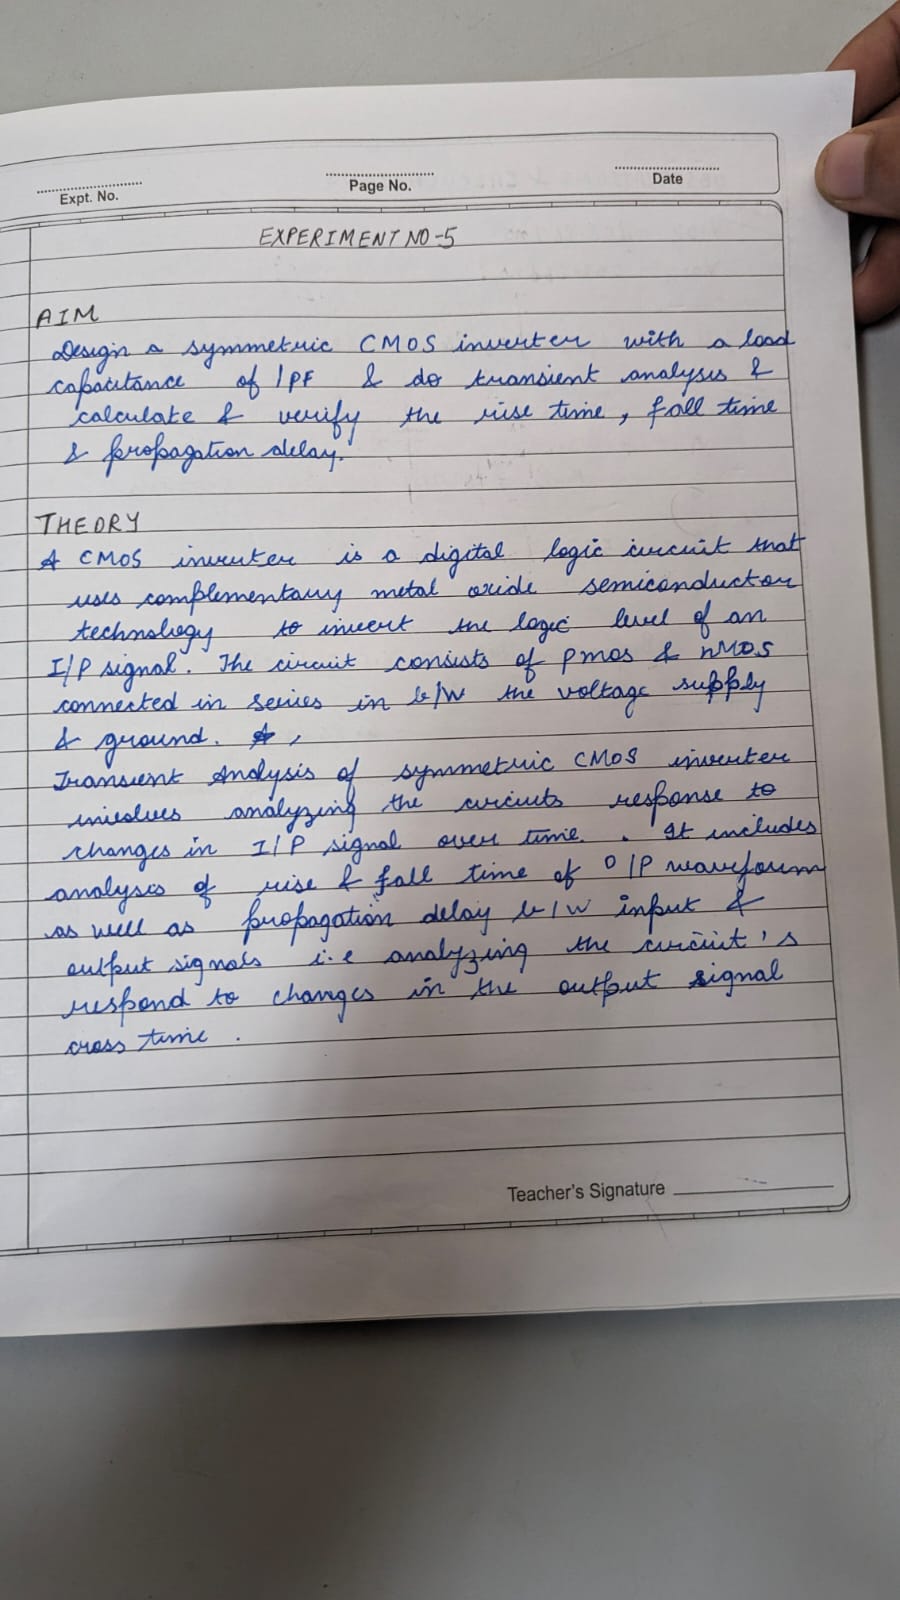 Expt. No.
Page No.
Date
EXPERIMENT NO-5
AIM
Design a symmetric CMOS inverter with a load
capacitance of 1PF & do transient analysis &
calculate & verify the rise time, fall time
& propagation delay.
THEORY
A CMOS inverter is a digital logic circuit that
uses complementary metal oxide semiconductor
technology to invert the logic level of an
I/P signal. The circuit consists of pmos & nMOS
connected in series in b/w the voltage supply
& ground.
Transient Analysis of symmetric CMOS inverter
involves analyzing the circuits response to
changes in I/P signal over time. . It includes
analysis of rise & fall time of O/P waveform
as well as propagation delay b/w input &
output signals i.e analyzing the circuit's
respond to changes in the output signal
cross time .
Teacher's Signature